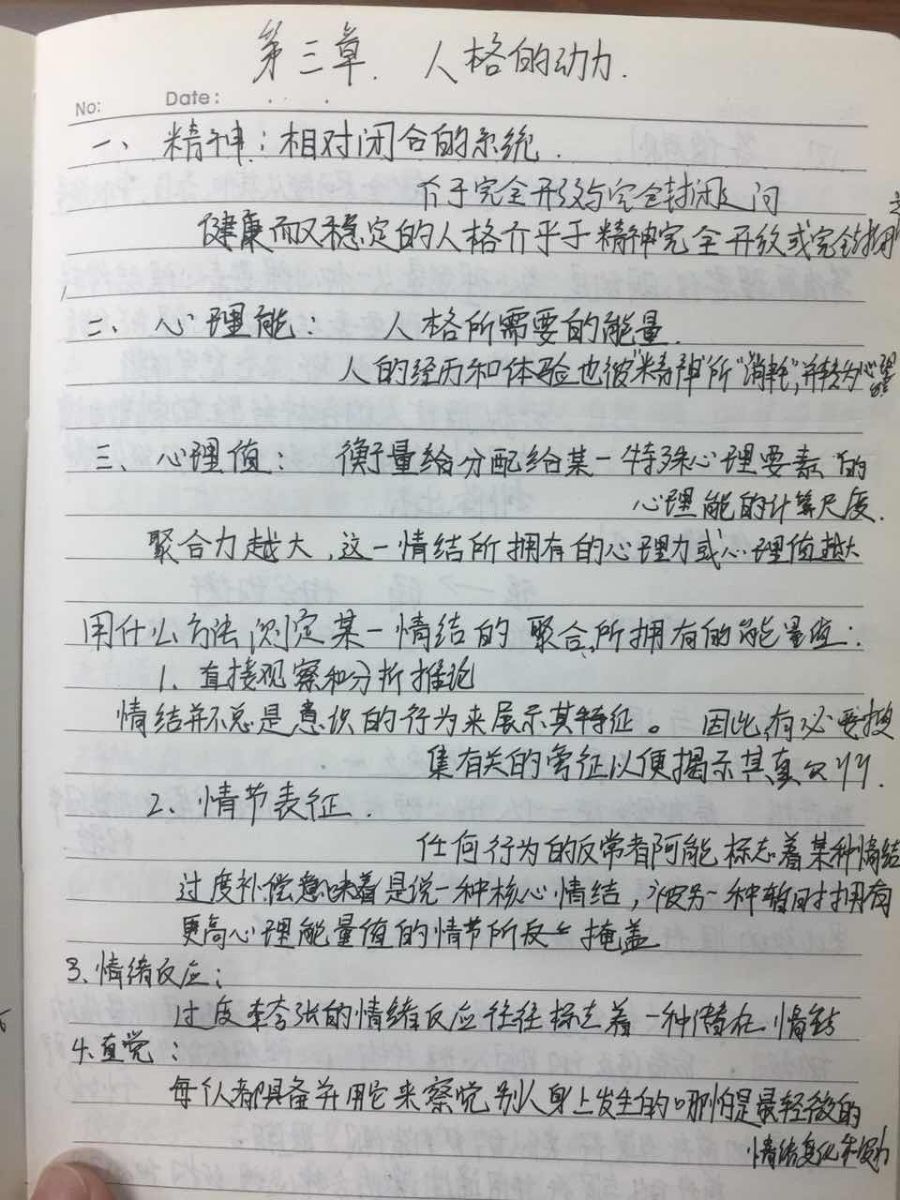 第三章. 人格的动力.
No: Date:
一、精神:相对闭合的系统.
介于完全开放与完全封闭之间
健康而又稳定的人格介乎于精神完全开放或完全封闭
二、心理能: 人格所需要的能量.
人的经历和体验也被"精神"所"消耗",并转为心理能
三、心理值: 衡量给分配给某一特殊心理要素的
心理能的计算尺度.
聚合力越大,这一情结所拥有的心理力或心理值越大
用什么方法,测定某一情结的聚合,所拥有的能量值:
1、直接观察和分析推论
情结并不总是意识的行为来展示其特征。因此,有必要搜
集有关的旁征以便揭示其真
2、情节表征.
任何行为的反常都可能标志着某种情结
过度补偿意味着是说一种核心情结,被另一种暂时拥有
更高心理能量值的情节所 掩盖
3.情绪反应:
过度 夸张的情绪反应往往标志着一种潜在情结
4.直觉:
每个人都具备并用它来察觉别人身上发生的哪怕是最轻微的
情绪变化